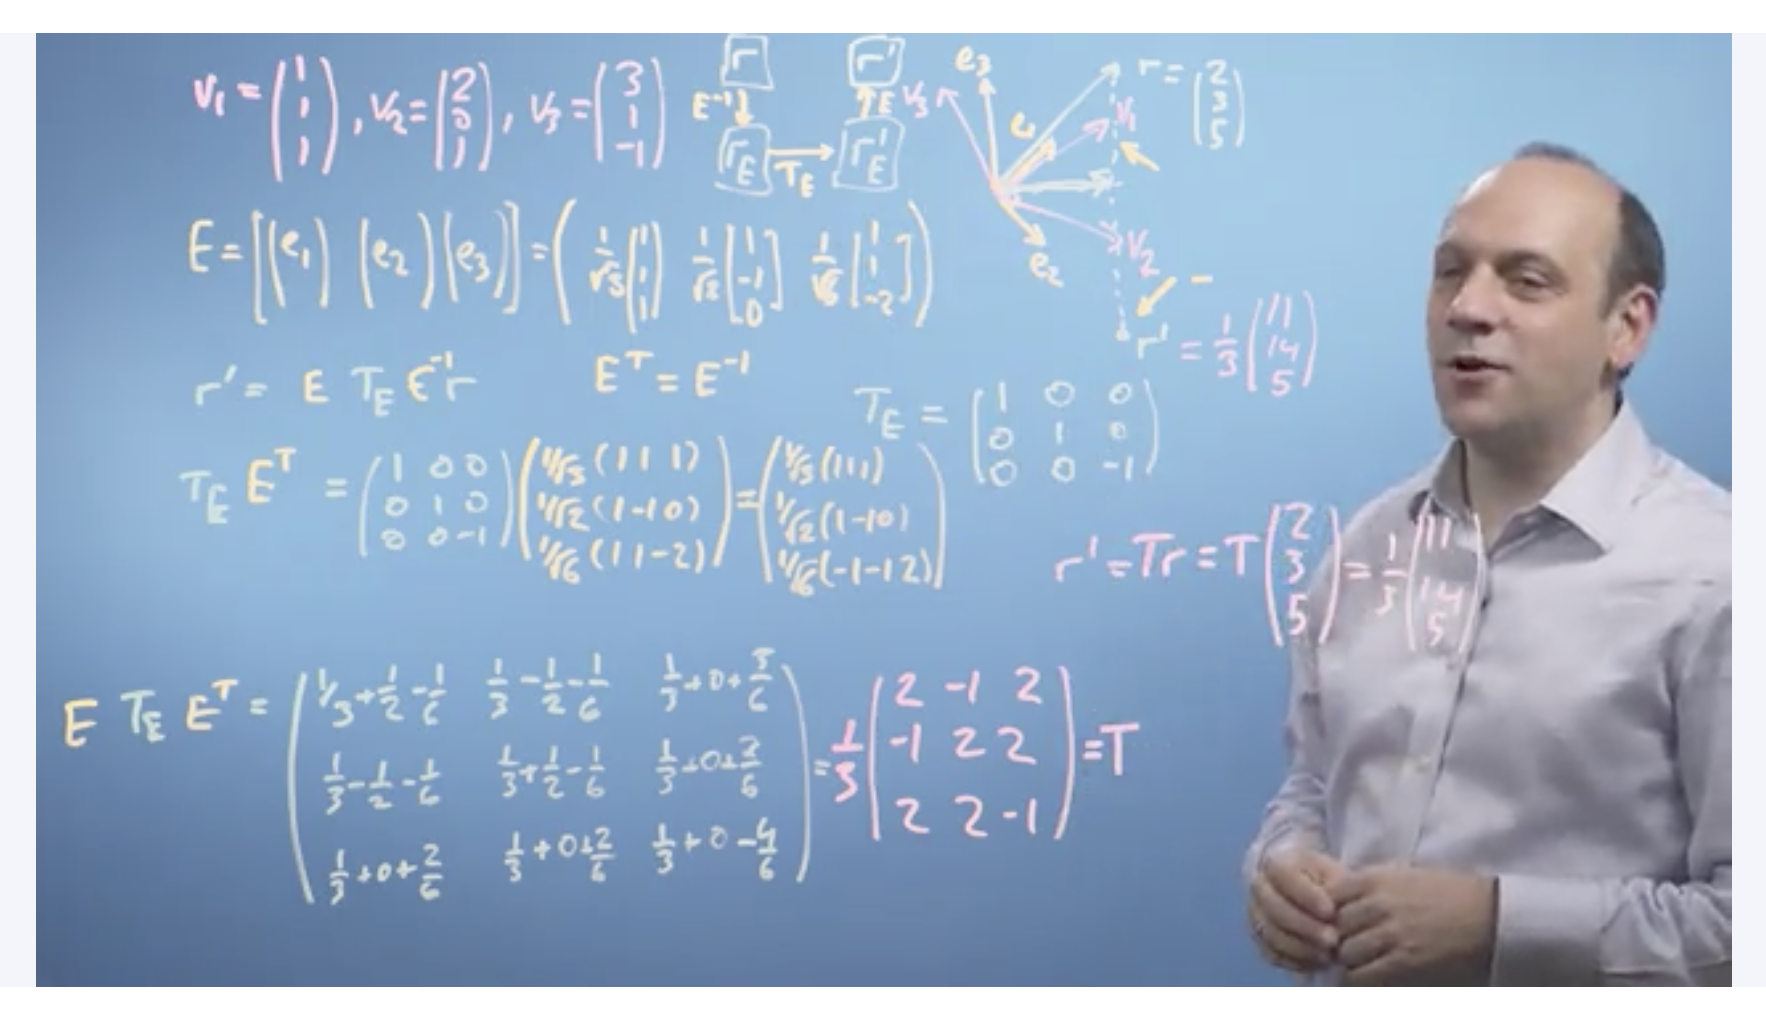 v₁ = (1 1 1), v₂ = (2 0 1), v₃ = (3 1 -1)
r r'
E⁻¹ E
r_E T_E r'_E
e₃ v₃ e₁ v₁ r = (2 3 5)
v₂ e₂
E = [(e₁) (e₂) (e₃)] = ( 1/√3 (1 1 1) 1/√2 [1 -1 0] 1/√6 [1 1 -2] )
r' = 1/3 (11 14 5)
r' = E T_E E⁻¹ r E^T = E⁻¹
T_E = (1 0 0
0 1 0
0 0 -1)
T_E E^T = (1 0 0 / 0 1 0 / 0 0 -1) (1/√3 (1 1 1) / 1/√2 (1 -1 0) / 1/√6 (1 1 -2)) = (1/√3 (1 1 1) / 1/√2 (1 -1 0) / 1/√6 (-1 -1 2))
r' = Tr = T (2 3 5) = 1/3 (11 14 5)
E T_E E^T = (1/3 + 1/2 - 1/6 1/3 - 1/2 - 1/6 1/3 + 0 + /6
1/3 - 1/2 - 1/6 1/3 + 1/2 - 1/6 1/3 + 0 + 2/6
1/3 + 0 + 2/6 1/3 + 0 + 2/6 1/3 + 0 - 4/6)
= 1/3 (2 -1 2
-1 2 2
2 2 -1) = T